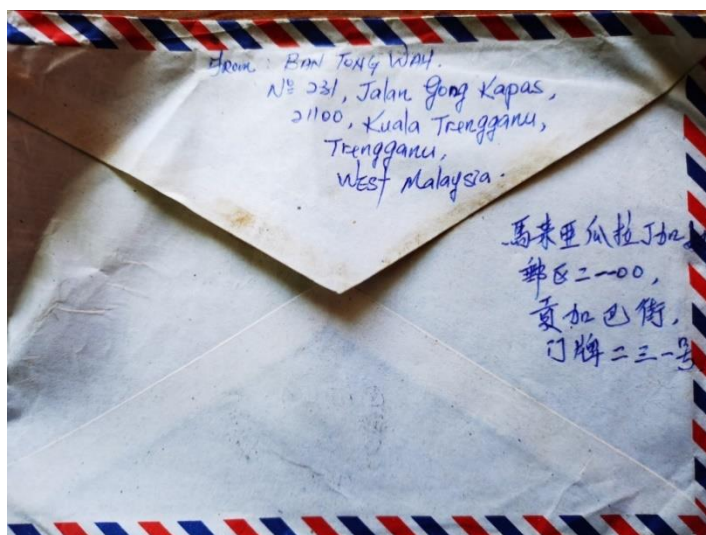 From : BAN TONG WAH.
Nº 231, Jalan Gong Kapas,
21100, Kuala Trengganu,
Trengganu,
West Malaysia.
馬来亜瓜拉丁加
郵区二一00,
貢加巴街,
门牌二三一号